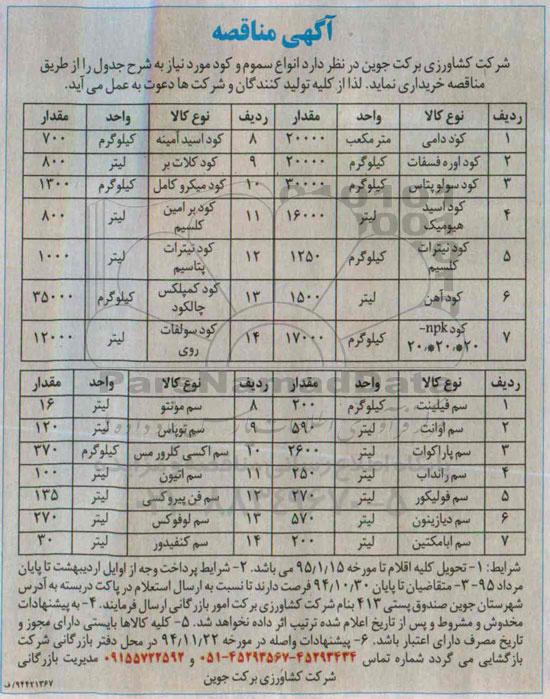 آگهی مناقصه
شرکت کشاورزی برکت جوین در نظر دارد انواع سموم و کود مورد نیاز به شرح جدول را از طریق
مناقصه خریداری نماید. لذا از کلیه تولید کنندگان و شرکت ها دعوت به عمل می آید.
ردیف نوع کالا واحد مقدار ردیف نوع کالا واحد مقدار
۱ کود دامی متر مکعب ۲۰۰۰۰ ۸ کود اسید آمینه کیلوگرم ۷۰۰
۲ کود اوره فسفات کیلوگرم ۲۰۰۰۰ ۹ کود کلات بر لیتر ۸۰۰
۳ کود سولو پتاس کیلوگرم ۳۰۰۰۰ ۱۰ کود میکرو کامل کیلوگرم ۱۳۰۰
۴ کود اسید هیومیک لیتر ۱۶۰۰۰ ۱۱ کود بر امین کلسیم لیتر ۸۰۰
۵ کود نیترات کلسیم کیلوگرم ۱۲۵۰ ۱۲ کود نیترات پتاسیم لیتر ۱۰۰۰
۶ کود آهن لیتر ۱۵۰۰ ۱۳ کود کمپلکس چالکود کیلوگرم ۳۵۰۰۰
۷ کود npk-۲۰*۲۰*۲۰ کیلوگرم ۱۷۰۰۰ ۱۴ کود سولفات روی لیتر ۱۲۰۰۰
ردیف نوع کالا واحد مقدار ردیف نوع کالا واحد مقدار
۱ سم فیلینت کیلوگرم ۲۰۰ ۸ سم مونتو لیتر ۱۶
۲ سم اوانت لیتر ۵۹۰ ۹ سم توپاس لیتر ۱۲۰
۳ سم پاراکوات لیتر ۲۶۰۰ ۱۰ سم اکسی کلرور مس کیلوگرم ۳۷۰
۴ سم رانداب لیتر ۲۵۰ ۱۱ سم اتیون لیتر ۱۰۰
۵ سم فولیکور لیتر ۲۷۰ ۱۲ سم فن پیروکسی لیتر ۱۳۵
۶ سم دیازینون لیتر ۵۷۰ ۱۳ سم لوفوکس لیتر ۲۷۰
۷ سم ابامکتین لیتر ۲۰۰ ۱۴ سم کنفیدور لیتر ۳۰
شرایط: ۱- تحویل کلیه اقلام تا مورخه ۹۵/۱/۱۵ می باشد. ۲- شرایط پرداخت وجه از اوایل اردیبهشت تا پایان
مرداد ۹۵- ۳- متقاضیان تا پایان ۹۴/۱۰/۳۰ فرصت دارند تا نسبت به ارسال استعلام در پاکت دربسته به آدرس
شهرستان جوین صندوق پستی ۴۱۳ بنام شرکت کشاورزی برکت امور بازرگانی ارسال فرمایند. ۴- به پیشنهادات
مخدوش و مشروط و پس از تاریخ اعلام شده ترتیب اثر داده نخواهد شد. ۵- کلیه کالاها بایستی دارای مجوز و
تاریخ مصرف دارای اعتبار باشد. ۶- پیشنهادات واصله در مورخه ۹۴/۱۱/۲۲ در محل دفتر بازرگانی شرکت
بازگشایی می گردد شماره تماس ۴۵۲۹۳۴۳۴-۴۵۲۹۳۵۶۷-۰۵۱ و ۰۹۱۵۵۷۲۲۵۹۲ مدیریت بازرگانی
شرکت کشاورزی برکت جوین
۹۴۴۲۱۳۶۷/ف